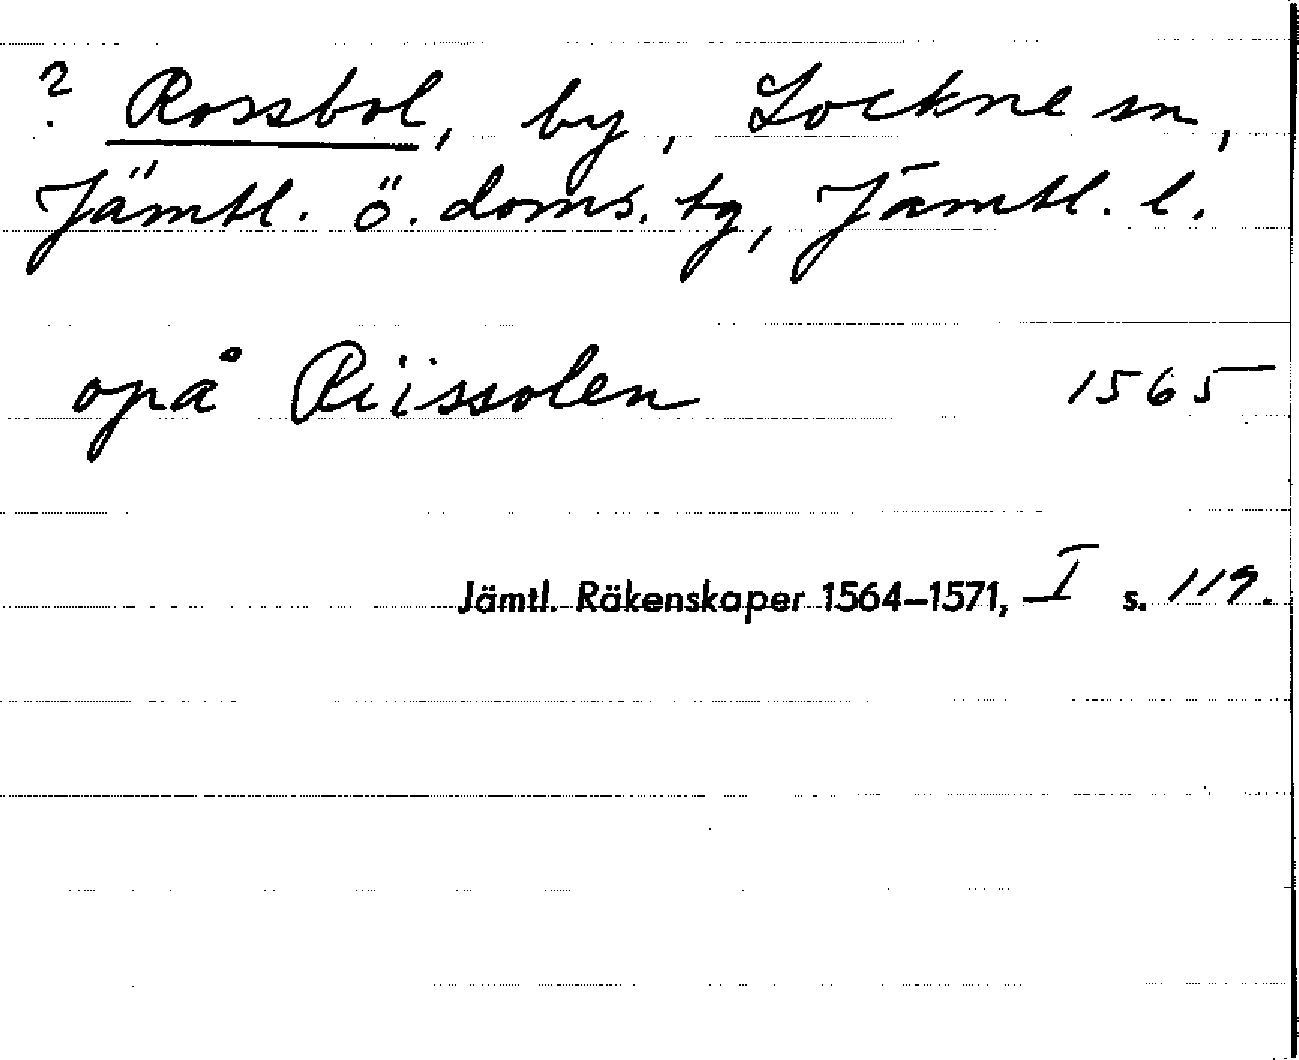 ? Rossbol, by, Lockne sn,
Jämtl. ö. doms. tg, Jämtl. l.
opå Riissolen 1565
Jämtl. Räkenskaper 1564–1571, I s. 119.